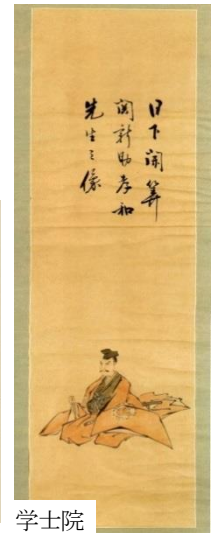 日下開算
関新助孝和
先生之像
学士院